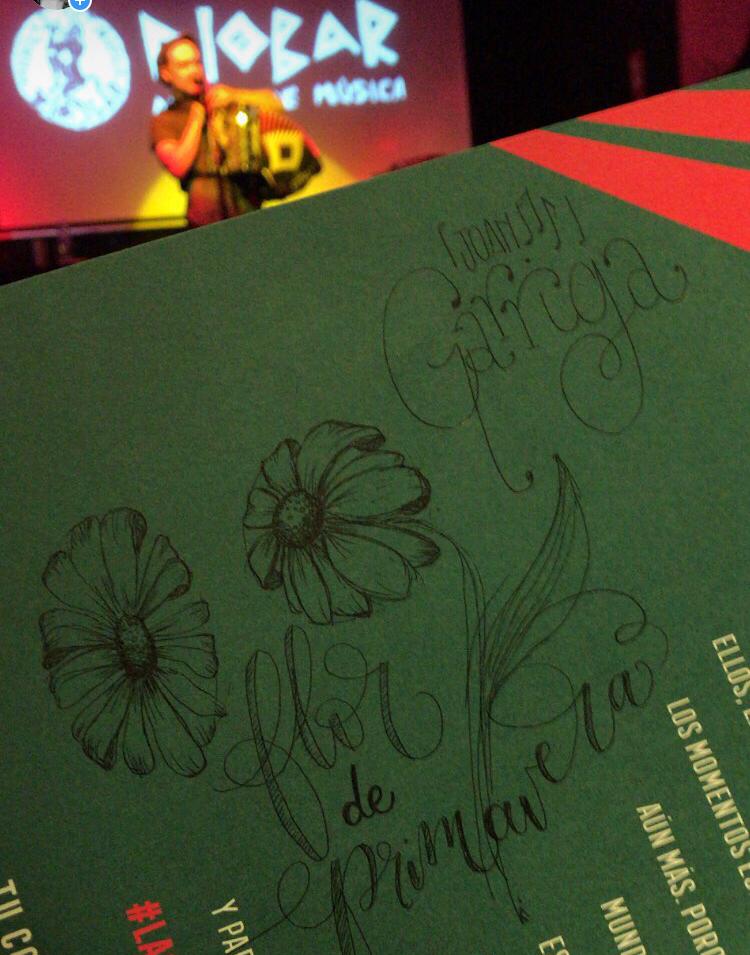 DIOBAR
DE MÚSICA
JOANJO
Garriga
flor
de
primavera
ELLOS,
LOS MOMENTOS
AÚN MÁS. PORQ
MUND
ES
Y PAR
#LA
TU CO